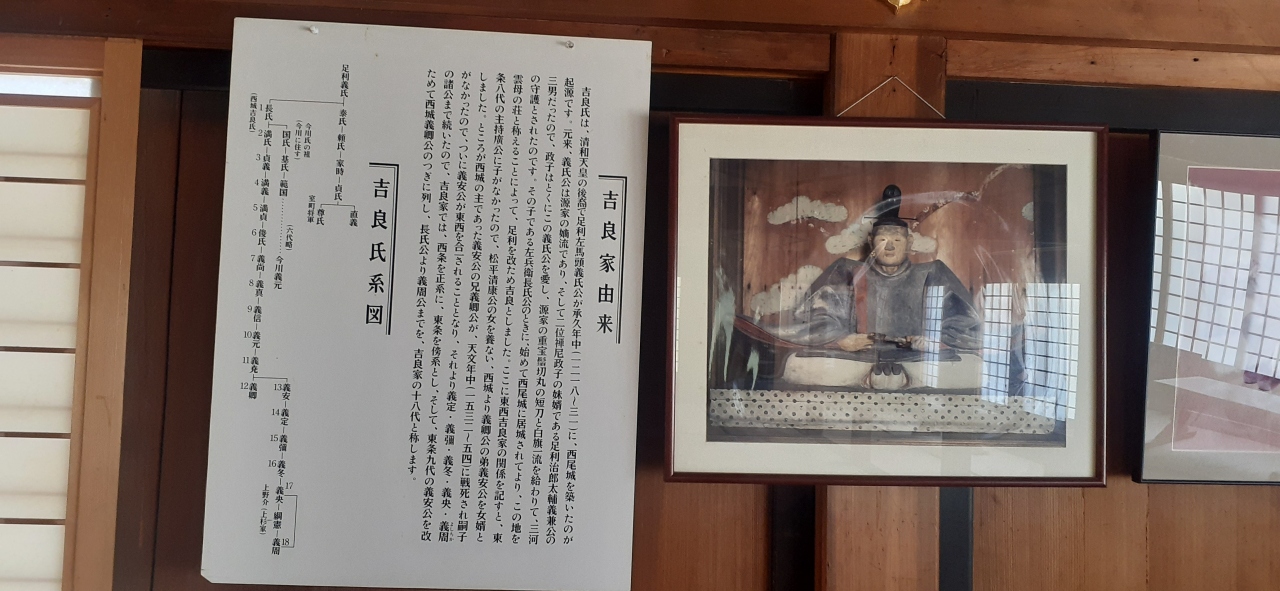 吉良家由来
吉良氏は、清和天皇の後裔で足利左馬頭義氏公が承久年中(一二一八〜三一)に、西尾城を築いたのが
起源です。元来、義氏公は源家の嫡流であり、そして二位禅尼政子の妹婿である足利治郎太輔義兼公の
三男だったので、政子はとくにこの義氏公を愛し、源家の重宝髭切丸の短刀と白旗一流を給わりて、三河
の守護とされたのです。その子である左兵衛長氏公のときに、始めて西尾城に居城されてより、この地を
雲母の荘と称えることによって、足利を改ため吉良としました。ここに東西吉良家の関係を記すと、東
条八代の主持廣公に子がなかったので、松平清康公の女を養ない、西城より義卿公の弟義安公を女婿と
しました。ところが西城の主であった義安公の兄義卿公が、天文年中(一五三二〜五四)に戦死され嗣子
がなかったので、ついに義安公が東西を合一されることとなり、それより義定・義彌・義冬・義央・義周
の諸公まで続いたので、吉良家では、西条を正系に、東条を傍系とし、そして、東条九代の義安公を改
ためて西城義卿公のつぎに列し、長氏公より義周公までを、吉良家の十八代と称します。
吉良氏系図
足利義氏
泰氏―頼氏―家時―貞氏
直義
尊氏
室町将軍
今川氏の祖
(今川に住す)
国氏―基氏―範国………(六代略)今川義元
1長氏
(西城吉良氏)
2満氏―3貞義―4満義―5満貞―6俊氏―7義尚―8義真―9義信―10義元―11義堯
12義卿
13義安―14義定―15義彌―16義冬―17義央―綱憲―18義周
上野介(上杉家)